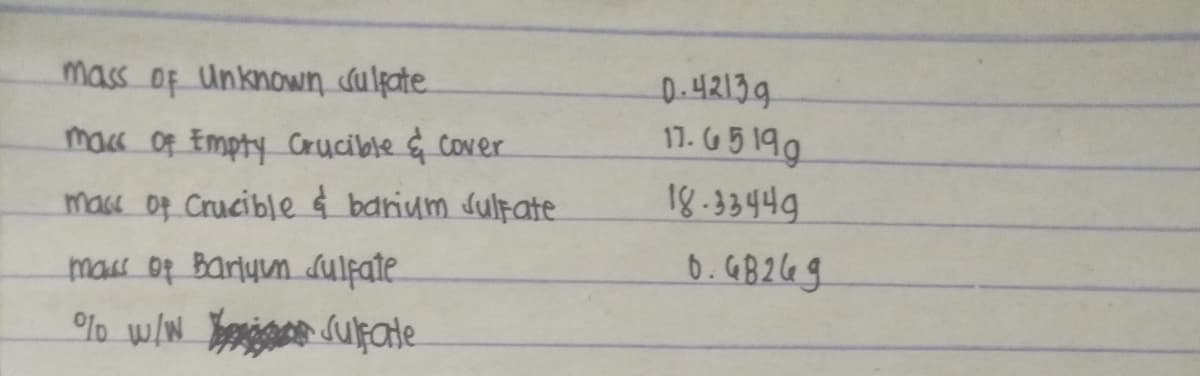 mass of unknown sulfate 0.4213g
mass of Empty Crucible & cover 17.6519g
mass of Crucible & barium sulfate 18.3344g
mass of Bariyum sulfate 0.6826g
% w/w sulfate